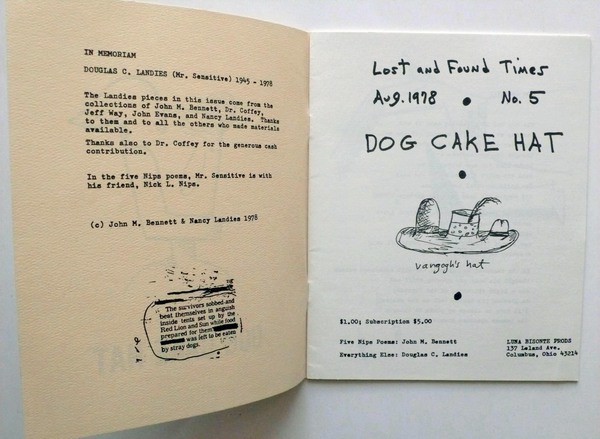 IN MEMORIAM
DOUGLAS C. LANDIES (Mr. Sensitive) 1945 - 1978
The Landies pieces in this issue come from the
collections of John M. Bennett, Dr. Coffey,
Jeff Way, John Evans, and Nancy Landies. Thanks
to them and to all the others who made materials
available.
Thanks also to Dr. Coffey for the generous cash
contribution.
In the five Nips poems, Mr. Sensitive is with
his friend, Nick L. Nips.
(c) John M. Bennett & Nancy Landies 1978
The survivors sobbed and
beat themselves in anguish
inside tents set up by the
Red Lion and Sun while food
prepared for them
was left to be eaten
by stray dogs.
Lost and Found Times
Aug. 1978 • No. 5
DOG CAKE HAT
vangogh's hat
$1.00; Subscription $5.00
Five Nips Poems: John M. Bennett
Everything Else: Douglas C. Landies
LUNA BISONTE PRODS
137 Leland Ave.
Columbus, Ohio 43214